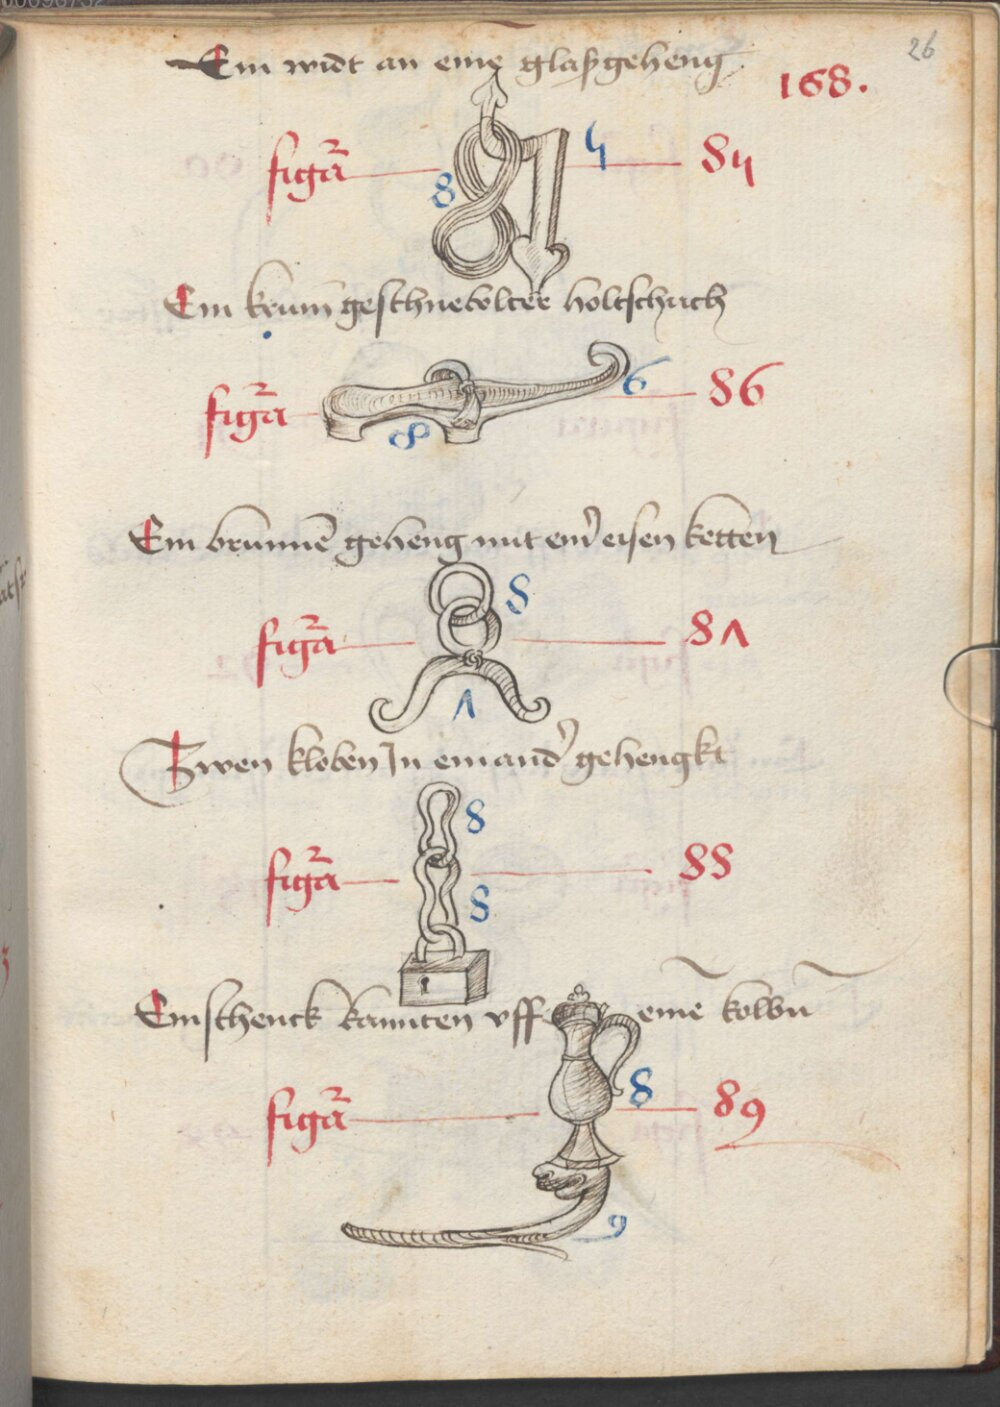 26
Ein widt an eine glaßgeheng
168.
figā
8 5
85
Ein krum̄ geschnebolter holtschuch
figā
8 6
86
Ein brunnē geheng mit ein' eisen ketten
figā
8 7
87
Zwen kloben In einand' gehengkt
figā
8 8
88
Ein schenck kannten vff einē kolbn̄
figā
8 9
89